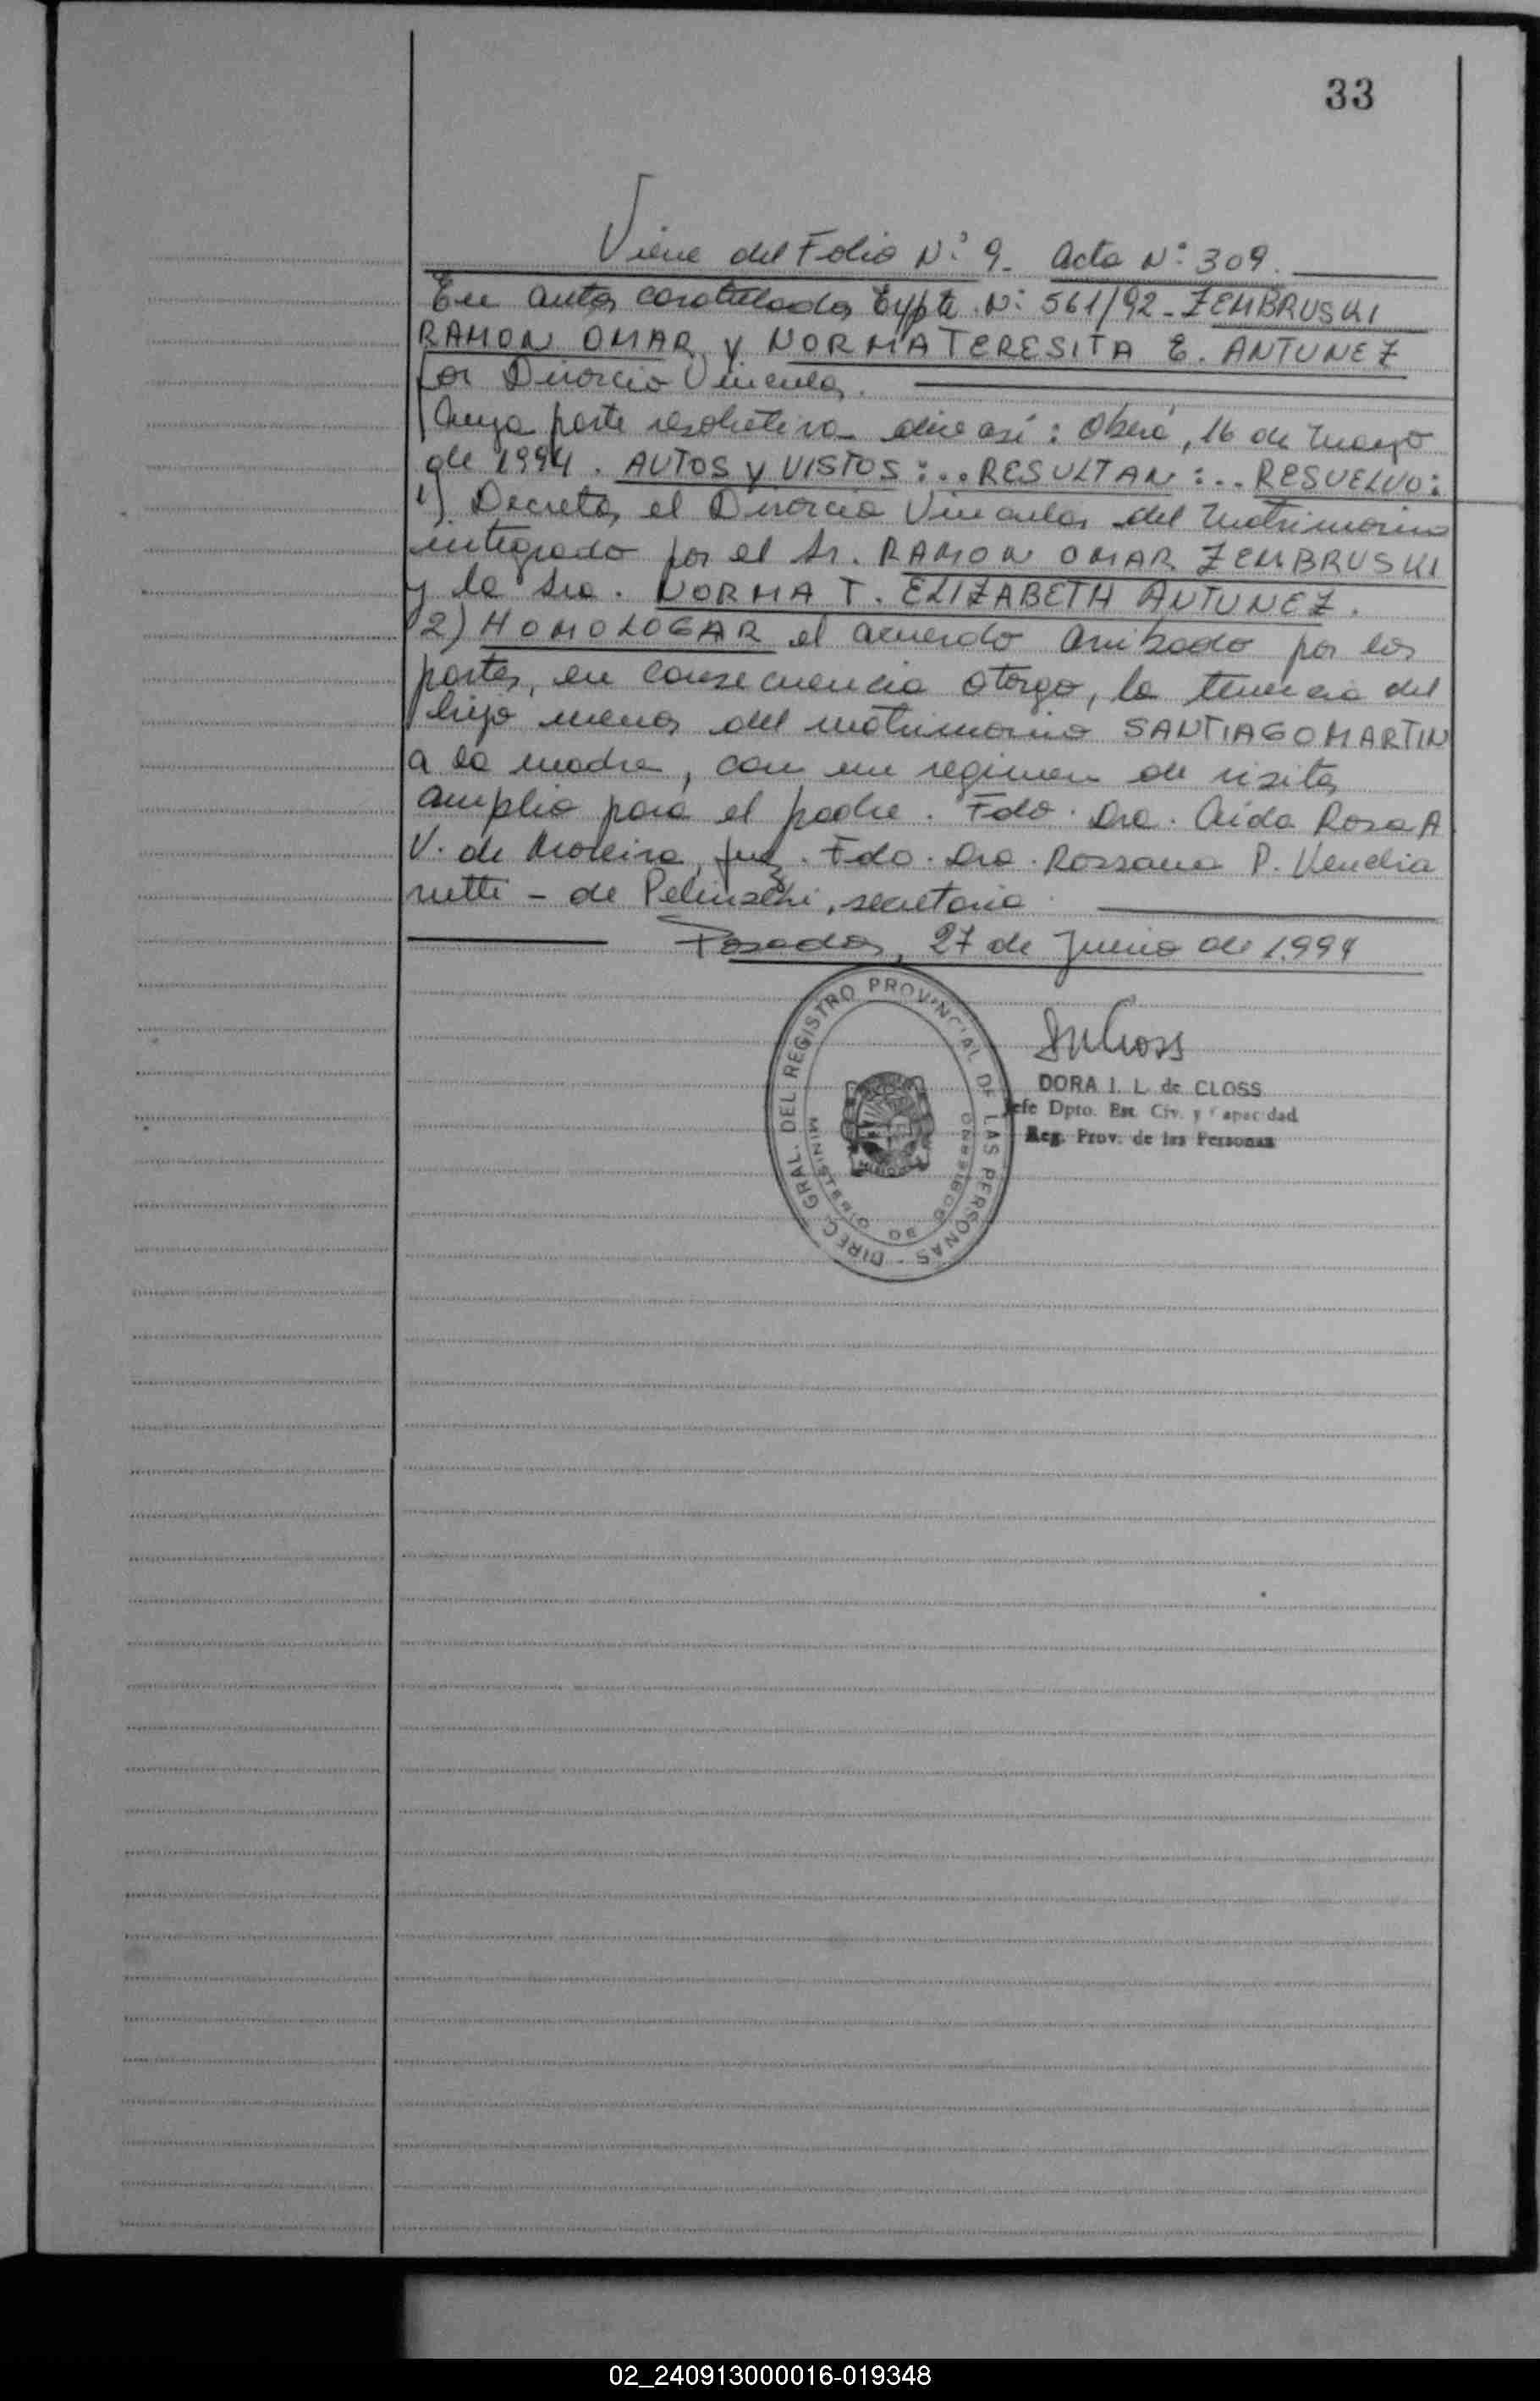 33
Viene del Folio N.º 9. Acta N.º 309.
En autos caratulados Expte. N.º 561/92 - ZEMBRUSKI
RAMON OMAR y NORMA TERESITA E. ANTUNEZ
por Divorcio Vincular.
Cuya parte resolutiva dice así: Oberá, 16 de Marzo
de 1994. AUTOS y VISTOS:.. RESULTAN:.. RESUELVO:
1) Decretar el Divorcio Vincular del Matrimonio
integrado por el Sr. RAMON OMAR ZEMBRUSKI
y la Sra. NORMA T. ELIZABETH ANTUNEZ.
2) HOMOLOGAR el acuerdo arribado por las
partes, en consecuencia otorgo, la tenencia del
hijo menor del matrimonio SANTIAGO MARTIN
a la madre, con un regimen de visitas
amplio para el padre. Fdo. Dra. Aida Rosa A
V. de Moreira, Juez. Fdo. Dra. Rossana P. Vendia
rutti - de, secretaria.
Posadas, 27 de Junio de 1.994
DIREC. GRAL. DEL REGISTRO PROVINCIAL DE LAS PERSONAS -
MINISTERIO DE GOBIERNO
DORA I. L. de CLOSS
Jefe Dpto. Est. Civ. y Capacidad
Reg. Prov. de las Personas
02_240913000016-019348